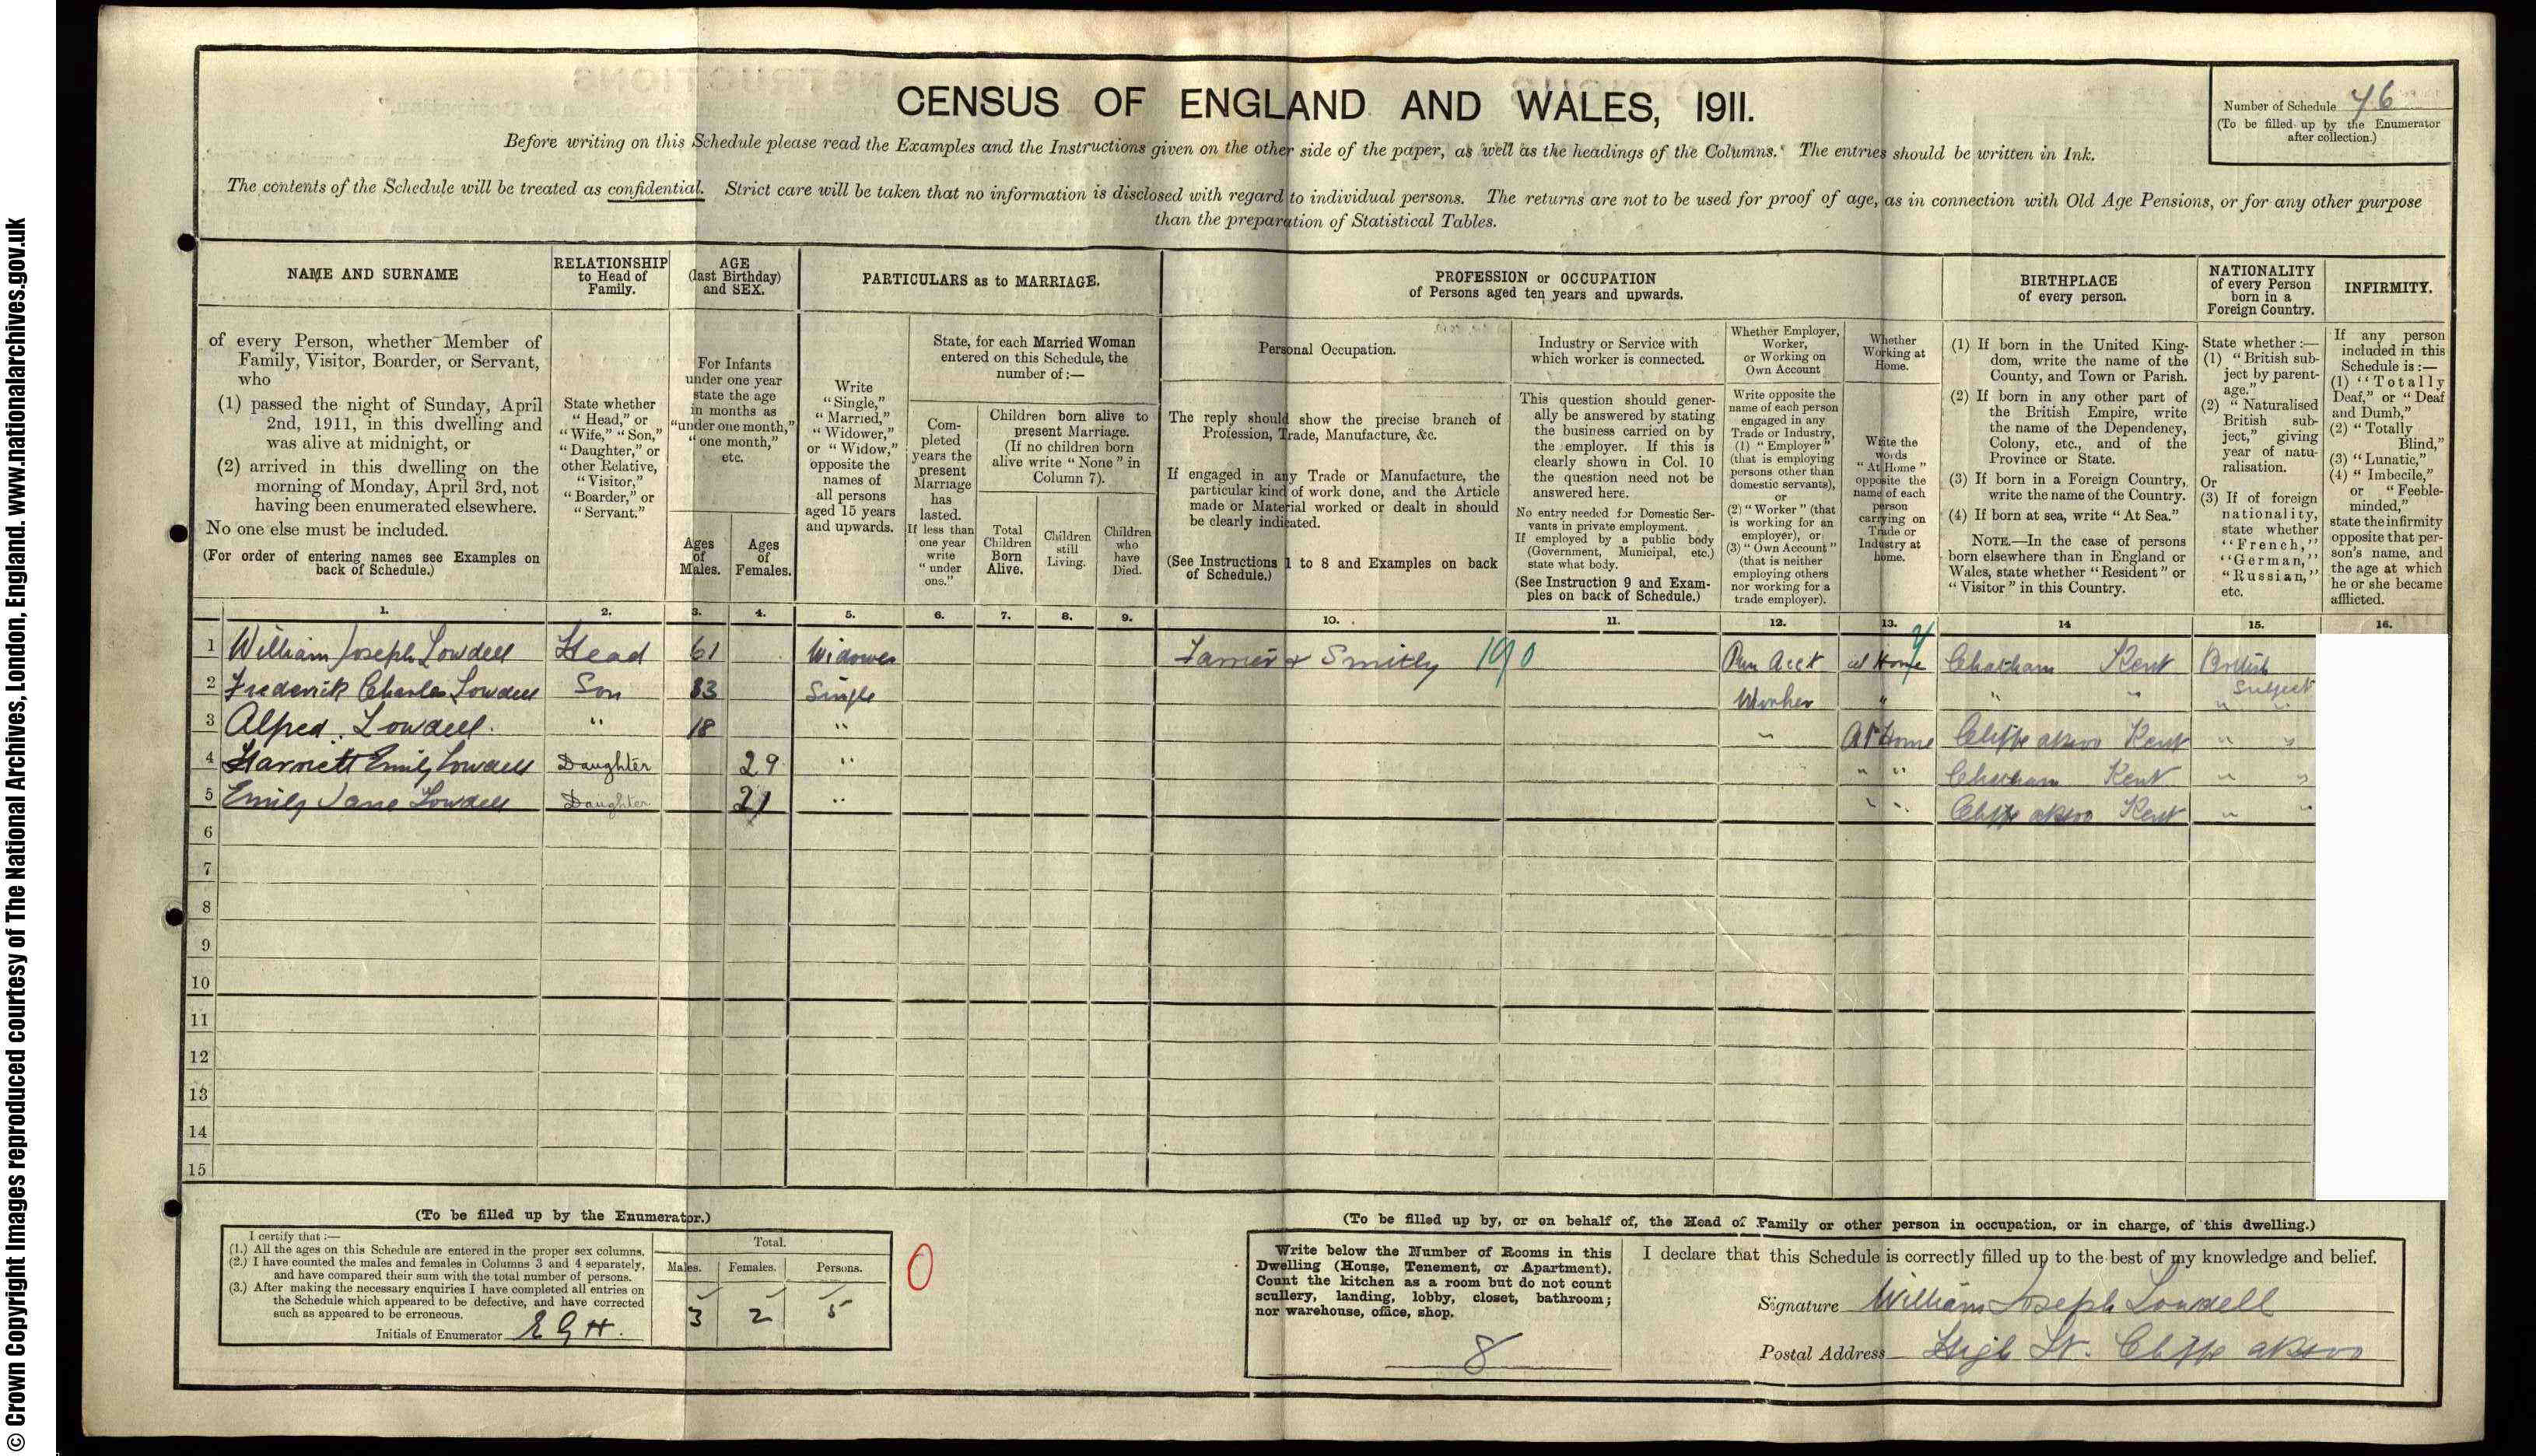 © Crown Copyright Images reproduced courtesy of The National Archives, London, England. www.nationalarchives.gov.uk
CENSUS OF ENGLAND AND WALES, 1911.
Number of Schedule 46
(To be filled up by the Enumerator
after collection.)
Before writing on this Schedule please read the Examples and the Instructions given on the other side of the paper, as well as the headings of the Columns. The entries should be written in Ink.
The contents of the Schedule will be treated as confidential. Strict care will be taken that no information is disclosed with regard to individual persons. The returns are not to be used for proof of age, as in connection with Old Age Pensions, or for any other purpose
than the preparation of Statistical Tables.
NAME AND SURNAME
of every Person, whether Member of
Family, Visitor, Boarder, or Servant,
who
(1) passed the night of Sunday, April
2nd, 1911, in this dwelling and
was alive at midnight, or
(2) arrived in this dwelling on the
morning of Monday, April 3rd, not
having been enumerated elsewhere.
No one else must be included.
(For order of entering names see Examples on
back of Schedule.)
RELATIONSHIP
to Head of
Family.
State whether
"Head," or
"Wife," "Son,"
"Daughter," or
other Relative,
"Visitor,"
"Boarder," or
"Servant."
AGE
(last Birthday)
and SEX.
For Infants
under one year
state the age
in months as
"under one month,"
"one month,"
etc.
Ages
of
Males.
Ages
of
Females.
PARTICULARS as to MARRIAGE.
Write
"Single,"
"Married,"
"Widower,"
or "Widow,"
opposite the
names of
all persons
aged 15 years
and upwards.
State, for each Married Woman
entered on this Schedule, the
number of:—
Com-
pleted
years the
present
Marriage
has
lasted.
If less than
one year
write
"under
one."
Children born alive to
present Marriage.
(If no children born
alive write "None" in
Column 7).
Total
Children
Born
Alive.
Children
still
Living.
Children
who
have
Died.
PROFESSION or OCCUPATION
of Persons aged ten years and upwards.
Personal Occupation.
The reply should show the precise branch of
Profession, Trade, Manufacture, &c.
If engaged in any Trade or Manufacture, the
particular kind of work done, and the Article
made or Material worked or dealt in should
be clearly indicated.
(See Instructions 1 to 8 and Examples on back
of Schedule.)
Industry or Service with
which worker is connected.
This question should gener-
ally be answered by stating
the business carried on by
the employer. If this is
clearly shown in Col. 10
the question need not be
answered here.
No entry needed for Domestic Ser-
vants in private employment.
If employed by a public body
(Government, Municipal, etc.)
state what body.
(See Instruction 9 and Exam-
ples on back of Schedule.)
Whether Employer,
Worker,
or Working on
Own Account
Write opposite the
name of each person
engaged in any
Trade or Industry,
(1) "Employer"
(that is employing
persons other than
domestic servants),
or
(2) "Worker" (that
is working for an
employer), or
(3) "Own Account"
(that is neither
employing others
nor working for a
trade employer).
Whether
Working at
Home.
Write the
words
"At Home"
opposite the
name of each
person
carrying on
Trade or
Industry at
home.
BIRTHPLACE
of every person.
(1) If born in the United King-
dom, write the name of the
County, and Town or Parish.
(2) If born in any other part of
the British Empire, write
the name of the Dependency,
Colony, etc., and of the
Province or State.
(3) If born in a Foreign Country,
write the name of the Country.
(4) If born at sea, write "At Sea."
NOTE.—In the case of persons
born elsewhere than in England or
Wales, state whether "Resident" or
"Visitor" in this Country.
NATIONALITY
of every Person
born in a
Foreign Country.
State whether:—
(1) "British sub-
ject by parent-
age."
(2) "Naturalised
British sub-
ject," giving
year of natu-
ralisation.
Or
(3) If of foreign
nationality,
state whether
"French,"
"German,"
"Russian,"
etc.
INFIRMITY.
If any person
included in this
Schedule is:—
(1) "Totally
Deaf," or "Deaf
and Dumb,"
(2) "Totally
Blind,"
(3) "Lunatic,"
(4) "Imbecile,"
or "Feeble-
minded,"
state the infirmity
opposite that per-
son's name, and
the age at which
he or she became
afflicted.
1. 2. 3. 4. 5. 6. 7. 8. 9. 10. 11. 12. 13. 14 15. 16.
1 William Joseph Lowdell Head 61 Widower Farrier & Smithy 190 Own Acct at Home Chatham Kent British
Subject
2 Frederick Charles Lowdell Son 33 Single Worker " " " " "
3 Alfred Lowdell " 18 " " At Home Cliffe at Hoo Kent " "
4 Harriett Emily Lowdell Daughter 29 " " " Chatham Kent " "
5 Emily Jane Lowdell Daughter 21 " " " Cliffe at Hoo Kent " "
6
7
8
9
10
11
12
13
14
15
(To be filled up by the Enumerator.)
I certify that:—
(1.) All the ages on this Schedule are entered in the proper sex columns.
(2.) I have counted the males and females in Columns 3 and 4 separately,
and have compared their sum with the total number of persons.
(3.) After making the necessary enquiries I have completed all entries on
the Schedule which appeared to be defective, and have corrected
such as appeared to be erroneous.
Initials of Enumerator E G H.
Total.
Males. Females. Persons.
3 2 5
0
(To be filled up by, or on behalf of, the Head of Family or other person in occupation, or in charge, of this dwelling.)
Write below the Number of Rooms in this
Dwelling (House, Tenement, or Apartment).
Count the kitchen as a room but do not count
scullery, landing, lobby, closet, bathroom;
nor warehouse, office, shop.
8
I declare that this Schedule is correctly filled up to the best of my knowledge and belief.
Signature William Joseph Lowdell
Postal Address High St. Cliffe at Hoo